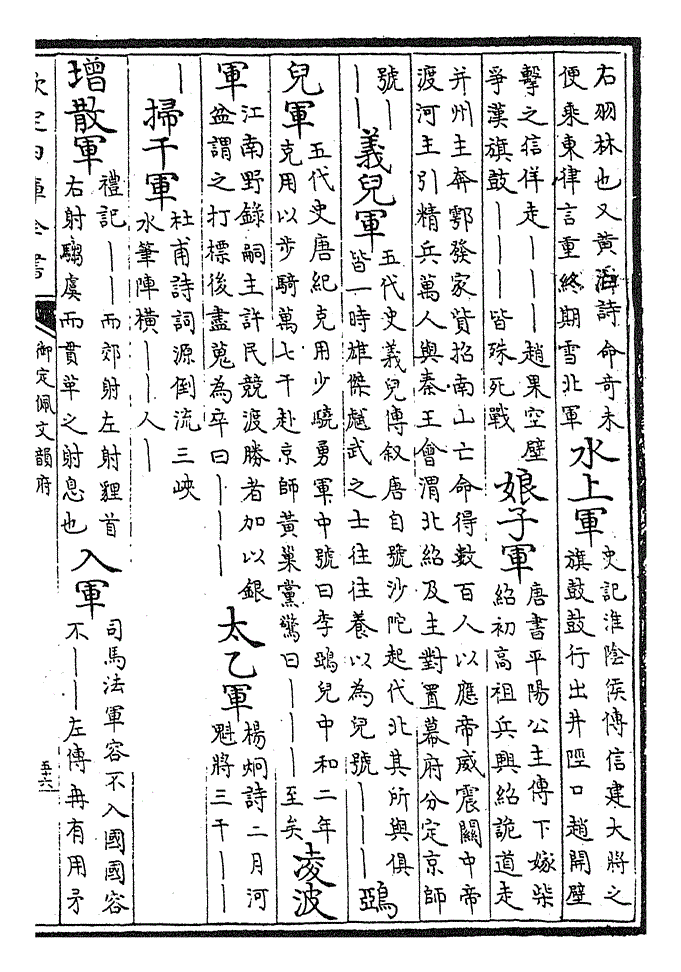 右羽林也又黃滔詩命奇未
便乘東律言重終期雪北軍
水上軍
史記淮陰侯傳信建大將之
旗鼓鼓行出井陘口趙開壁
擊之信佯走｜｜｜趙果空壁
爭漢旗鼓｜｜｜皆殊死戰
娘子軍
唐書平陽公主傳下嫁柴
紹初高祖兵興紹詭道走
并州主奔鄠發家貲招南山亡命得數百人以應帝威震關中帝
渡河主引精兵萬人與秦王會渭北紹及主對置幕府分定京師
號｜
｜｜
義兒軍
五代史義兒傳叙唐自號沙陀起代北其所與俱
皆一時雄傑虣武之士往往養以為兒號｜｜｜
鵶
兒軍
五代史唐紀克用少驍勇軍中號曰李鵶兒中和二年
克用以步騎萬七千赴京師黃巢黨驚曰｜｜｜至矣
凌波
軍
江南野錄嗣主許民競渡勝者加以銀
盆謂之打標後盡蒐為卒曰｜｜｜
太乙軍
楊炯詩二月河
魁將三千｜｜
｜
掃千軍
杜甫詩詞源倒流三峽
水筆陣橫｜｜人｜
增散軍
禮記｜｜而郊射左射貍首
右射騶虞而貫革之射息也
入軍
司馬法軍容不入國國容
不｜｜左傳冉有用矛
欽定四庫全書
御定佩文韻府
五十六